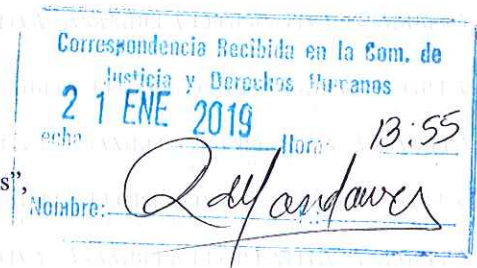 Correspondencia Recibida en la Com. de
Justicia y Derechos Humanos
21 ENE 2019
echa Hora: 13:55
s”,
Nombre: